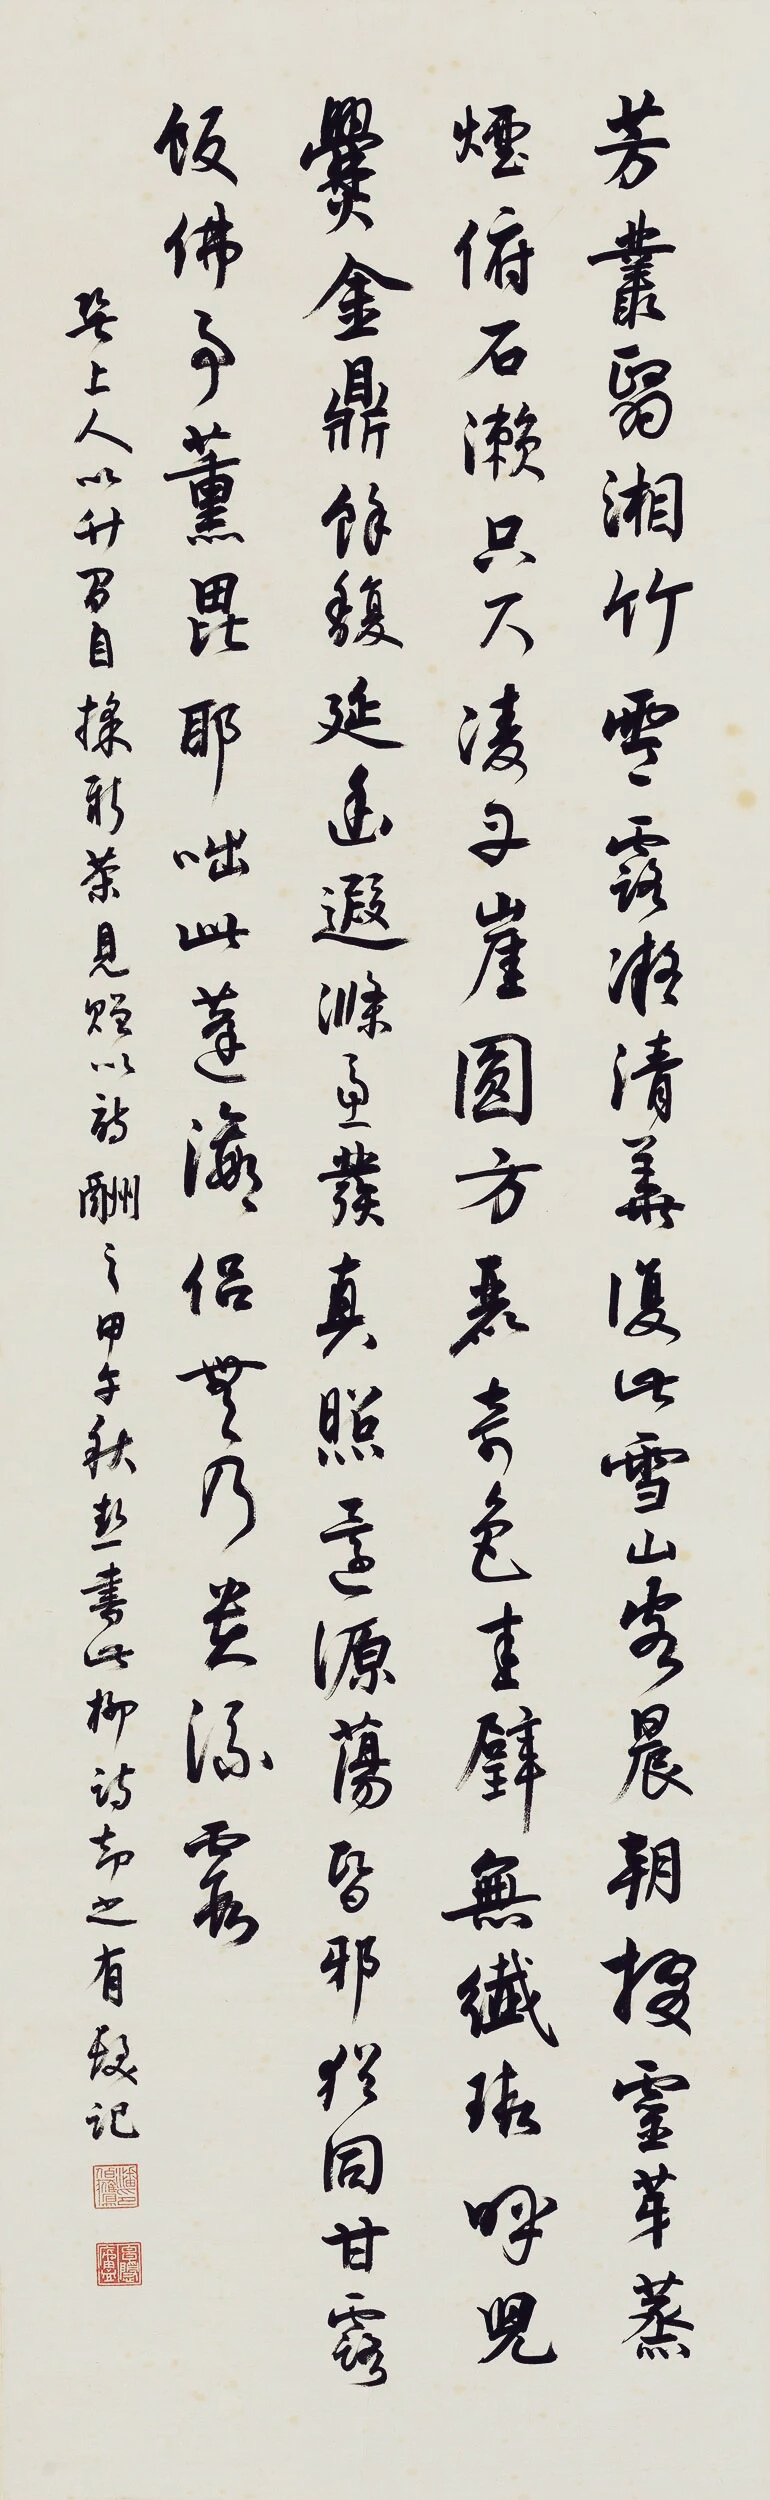 芳叢翳湘竹零露凝清華復此雪山客晨朝掇靈芽蒸
煙俯石瀨咫尺凌丹崖圓方麗奇色圭璧無纖瑕呼兒
爨金鼎餘馥延幽遐滌慮發真照還源蕩昏邪猶同甘露
飯佛事薰毘耶咄此蓬瀛侶無乃貴流霞
巽上人以竹間自採新茶見贈以詩酬之甲午秋熱書此柳詩却之有髮記